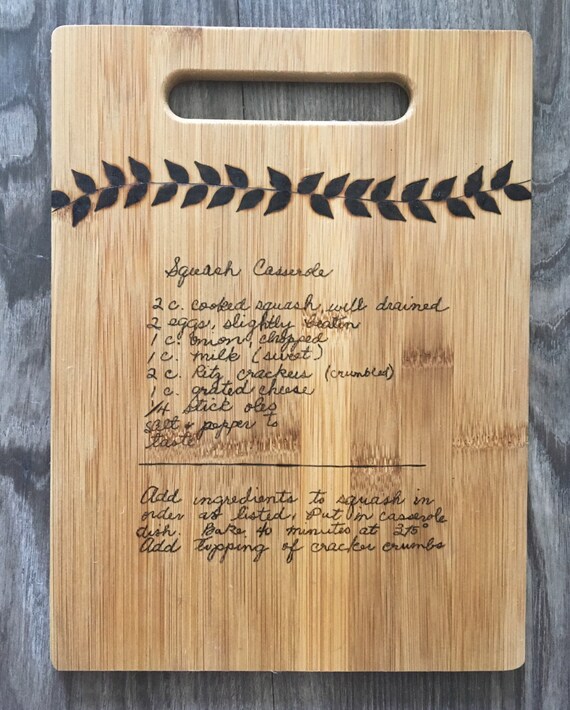 Squash Casserole
2 c. cooked squash, well drained
2 eggs, slightly beaten
1 c. onion, chopped
1 c. milk (sweet)
2 c. Ritz crackers (crumbled)
1 c. grated cheese
1/4 stick oleo
salt & pepper to
taste
Add ingredients to squash in
order as listed, Put in casserole
dish. Bake 40 minutes at 375°
Add topping of cracker crumbs